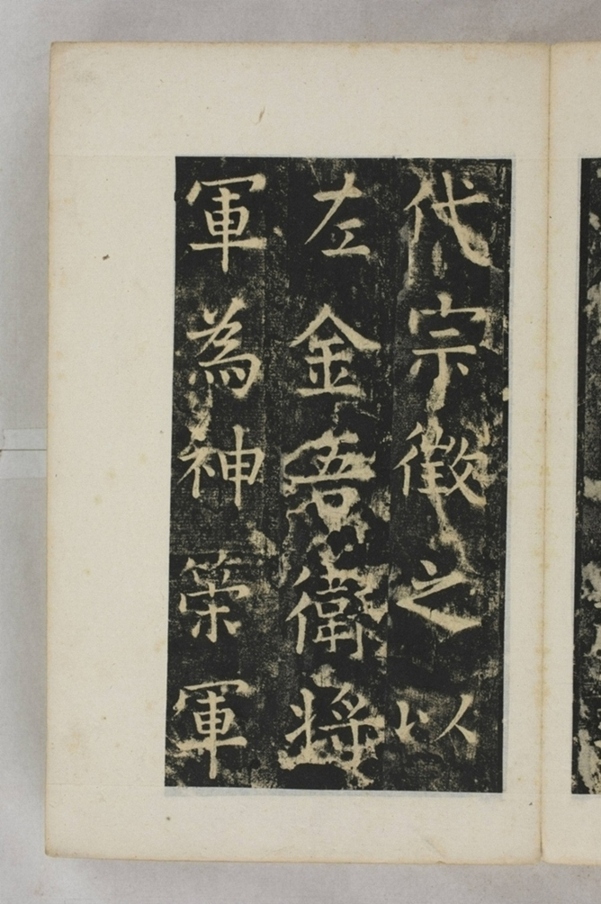 代宗徵之以
左金吾衛將
軍為神策軍